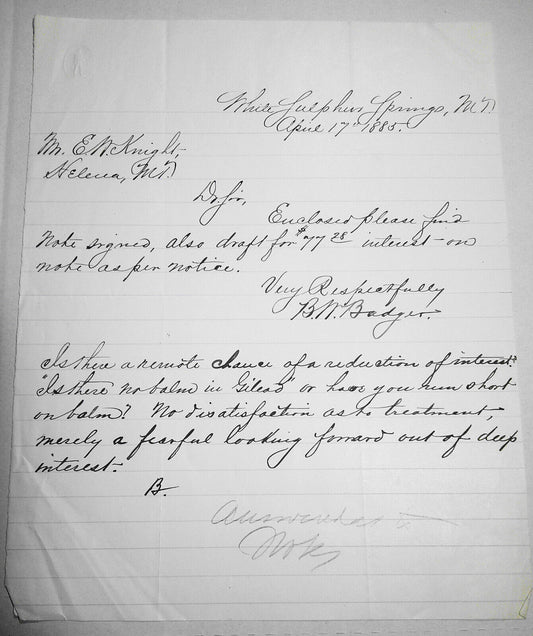 White Sulphur Springs, M.T.
April 17th 1885.
Mr. E.W. Knight,
Helena, M.T.
Dr Sir,
Enclosed please find
note signed, also draft for $77 28 interest on
note as per notice.
Very Respectfully
B.N. Badger.
Is there a remote chance of a reduction of interest?
"Is there no balm in Gilead" or have you run short
on balm? No disatisfaction as to treatment,
merely a fearful looking forward out of deep
interest.
B.
Answered